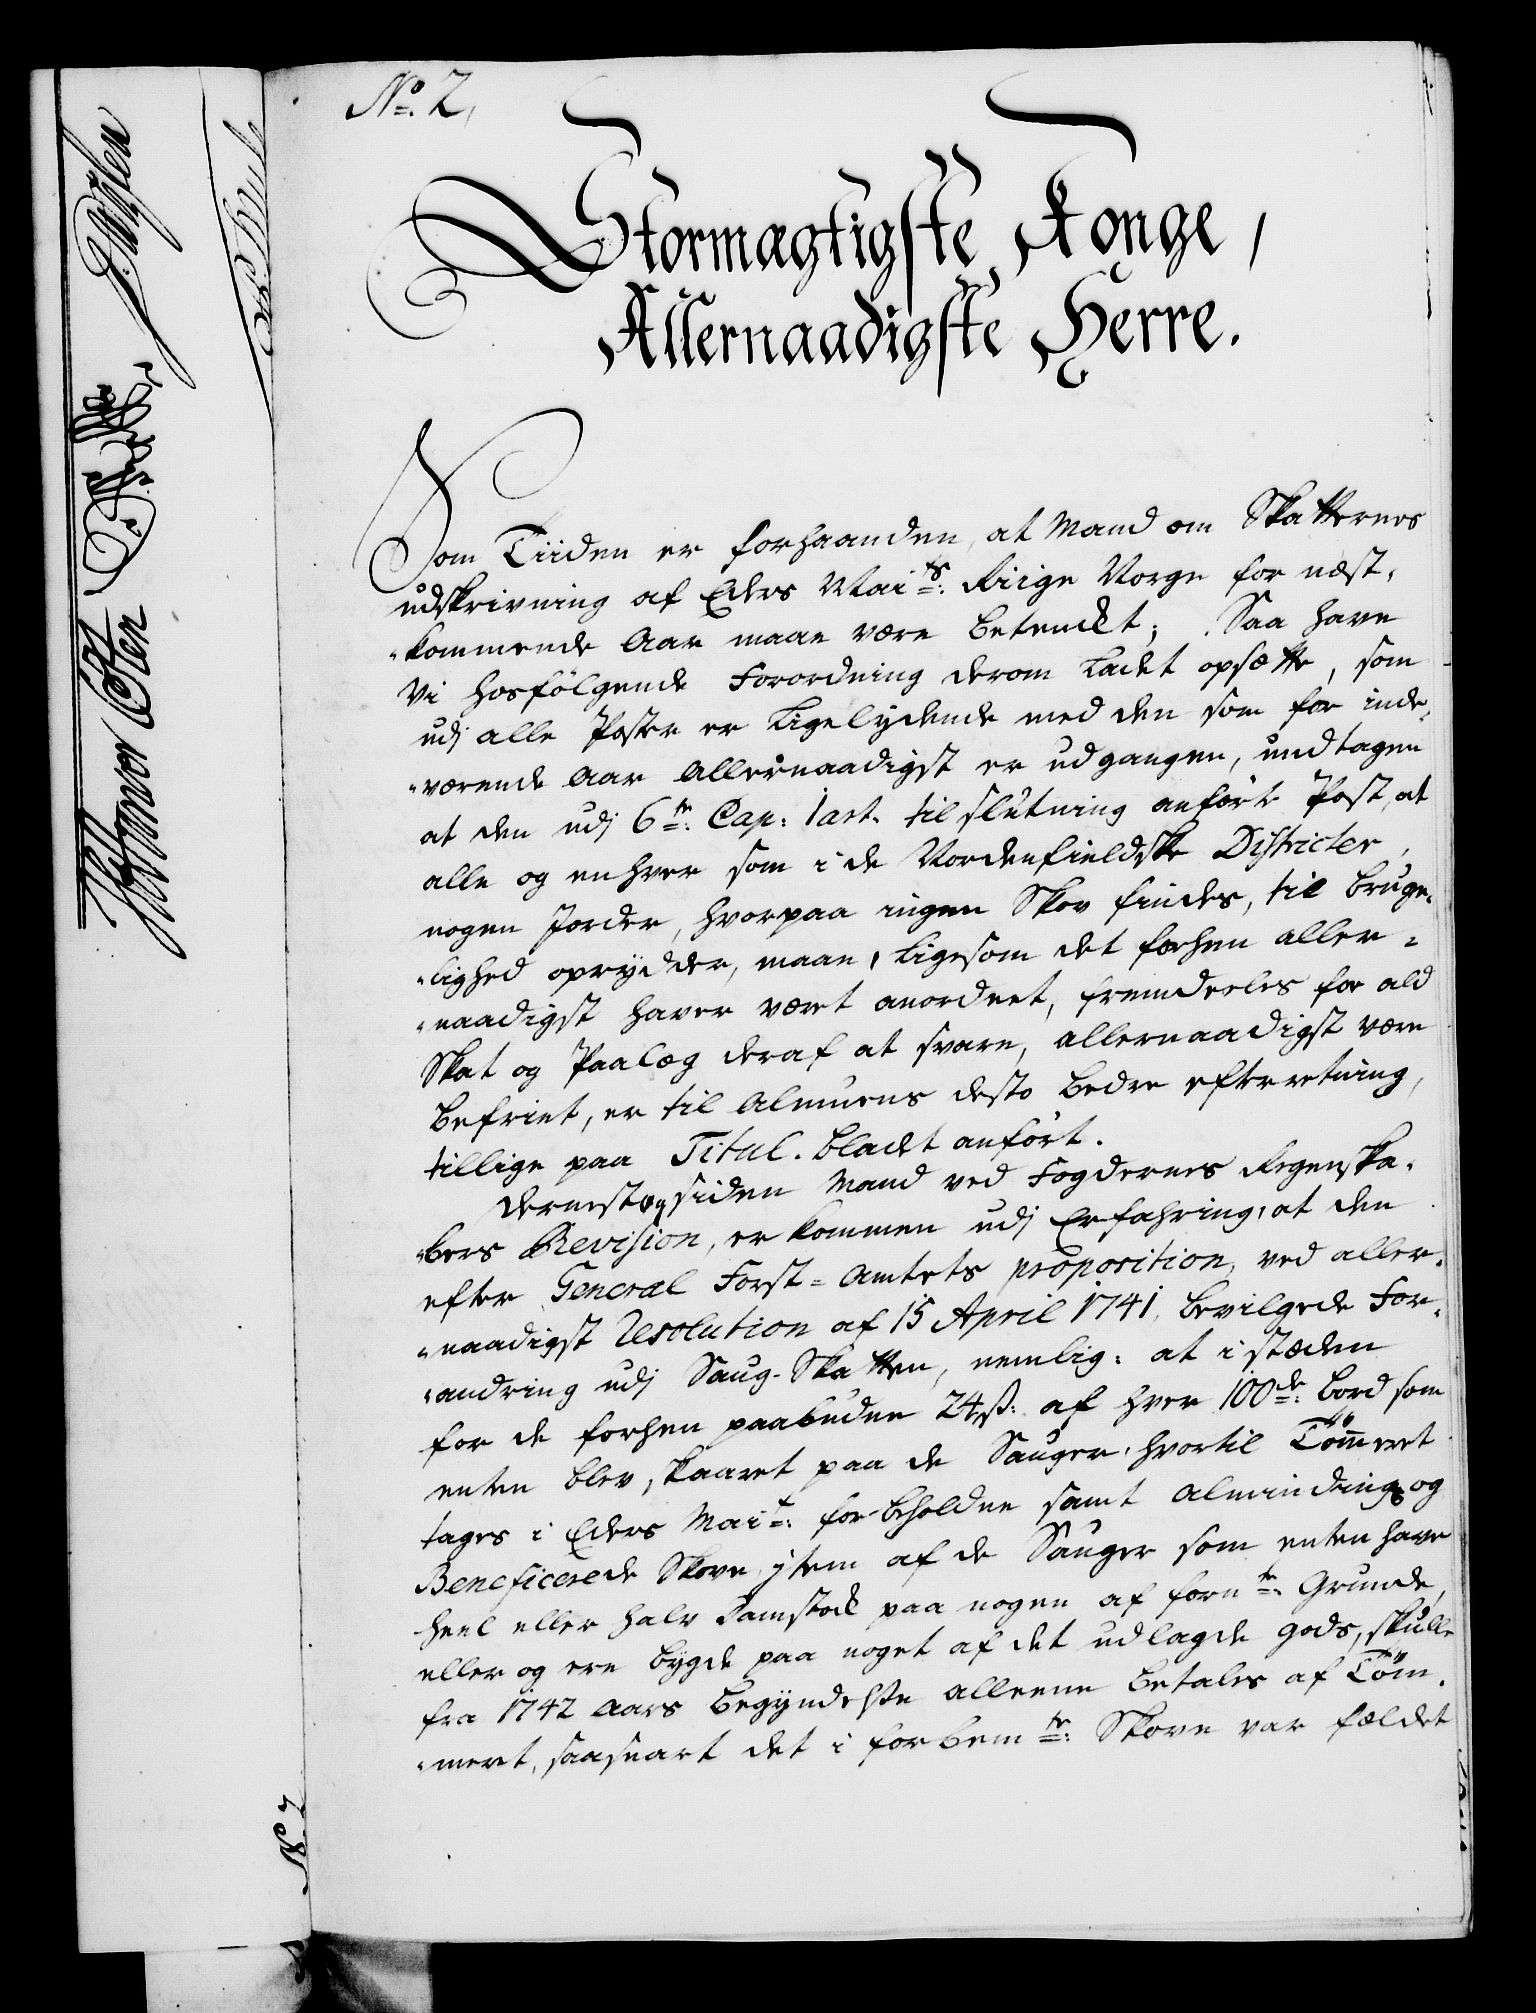 No. 2,
Stormægtigste Konge,
Allernaadigste Herre.
Som Tiiden er forhaanden, at Mand om Skatternes
udskrivning af Eders Maits: Riige Norge for næst-
kommende Aar maae være betenckt; Saa have
Vi hosfölgende Forordning derom ladet opsætte, som
udj alle Poster er ligelydende med den som for inde-
værende Aar Allernaadigst er udgangen, undtagen
at den udj 6te: Cap: 1 art. til slutning anförte Post, at
alle og enhver som i de Nordenfieldske Districter,
nogen Jorder, hvorpaa ingen Skov findes, til bruge-
lighed oprydder, maae, ligesom det forhen aller-
naadigst haver været anordnet, fremdeeles for ald
Skat og Paalæg deraf at svare, allernaadigst være
befriet, er til Almuens desto bedre efterretning,
tillige paa Titul-bladet anfört.
Dernest og siden Mand ved Fogdernes Regenska-
bers Revision, er kommen udj Erfahring, at den
efter General Forst-Amtets proposition, ved aller-
naadigst Resolution af 15 April 1741, bevilgede For-
andring udj Saug-Skatten, nemlig: at i stæden
for de forhen paabudne 24 ß: af hver 100de: bord som
enten blev skaaret paa de Sauger, hvortil Tömmeret
tages i Eders Mait: for-beholdne samt Alminding og
Beneficerede Skove, jtem af de Sauger som enten have
heel eller halv Damstock paa nogen af fornte: Grunde,
eller og ere bygde paa noget af det udlagde gods, skulle
fra 1742 Aars begyndelse alleene betales af Töm-
meret, saasnart det i forbemte: Skove var fældet